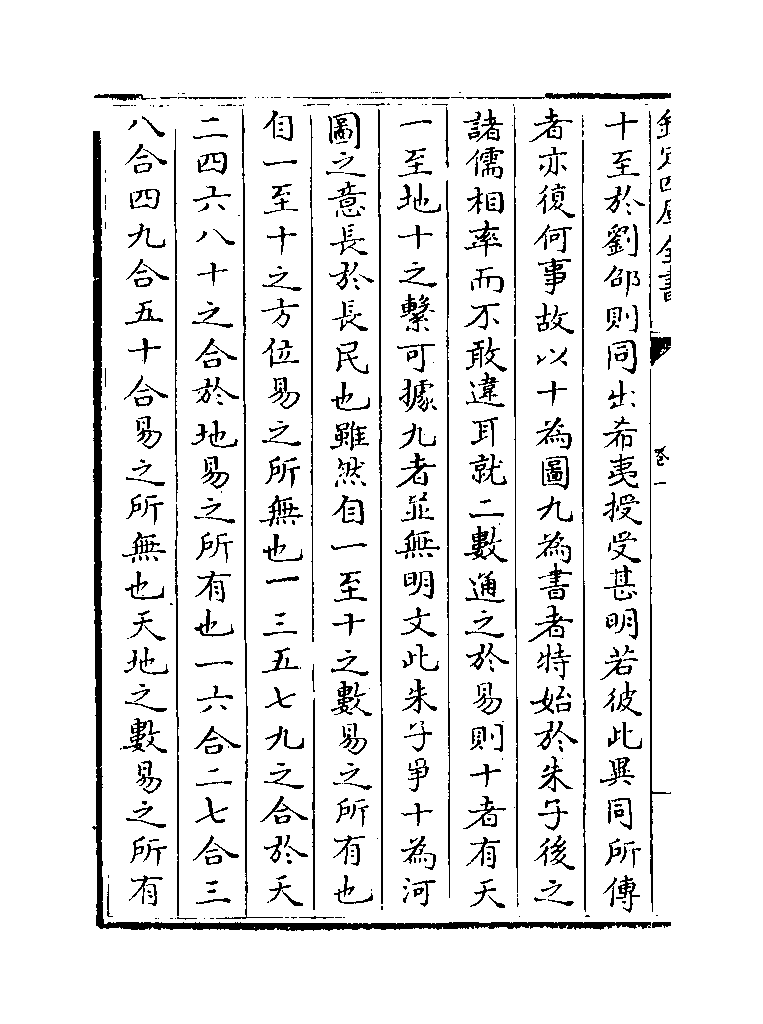 欽定四庫全書
卷一
十至於劉邵則同出希夷授受甚明若彼此異同所傳
者亦復何事故以十為圖九為書者特始於朱子後之
諸儒相率而不敢違耳就二數通之於易則十者有天
一至地十之繫可據九者並無明文此朱子爭十為河
圖之意長於長民也雖然自一至十之數易之所有也
自一至十之方位易之所無也一三五七九之合於天
二四六八十之合於地易之所有也一六合二七合三
八合四九合五十合易之所無也天地之數易之所有